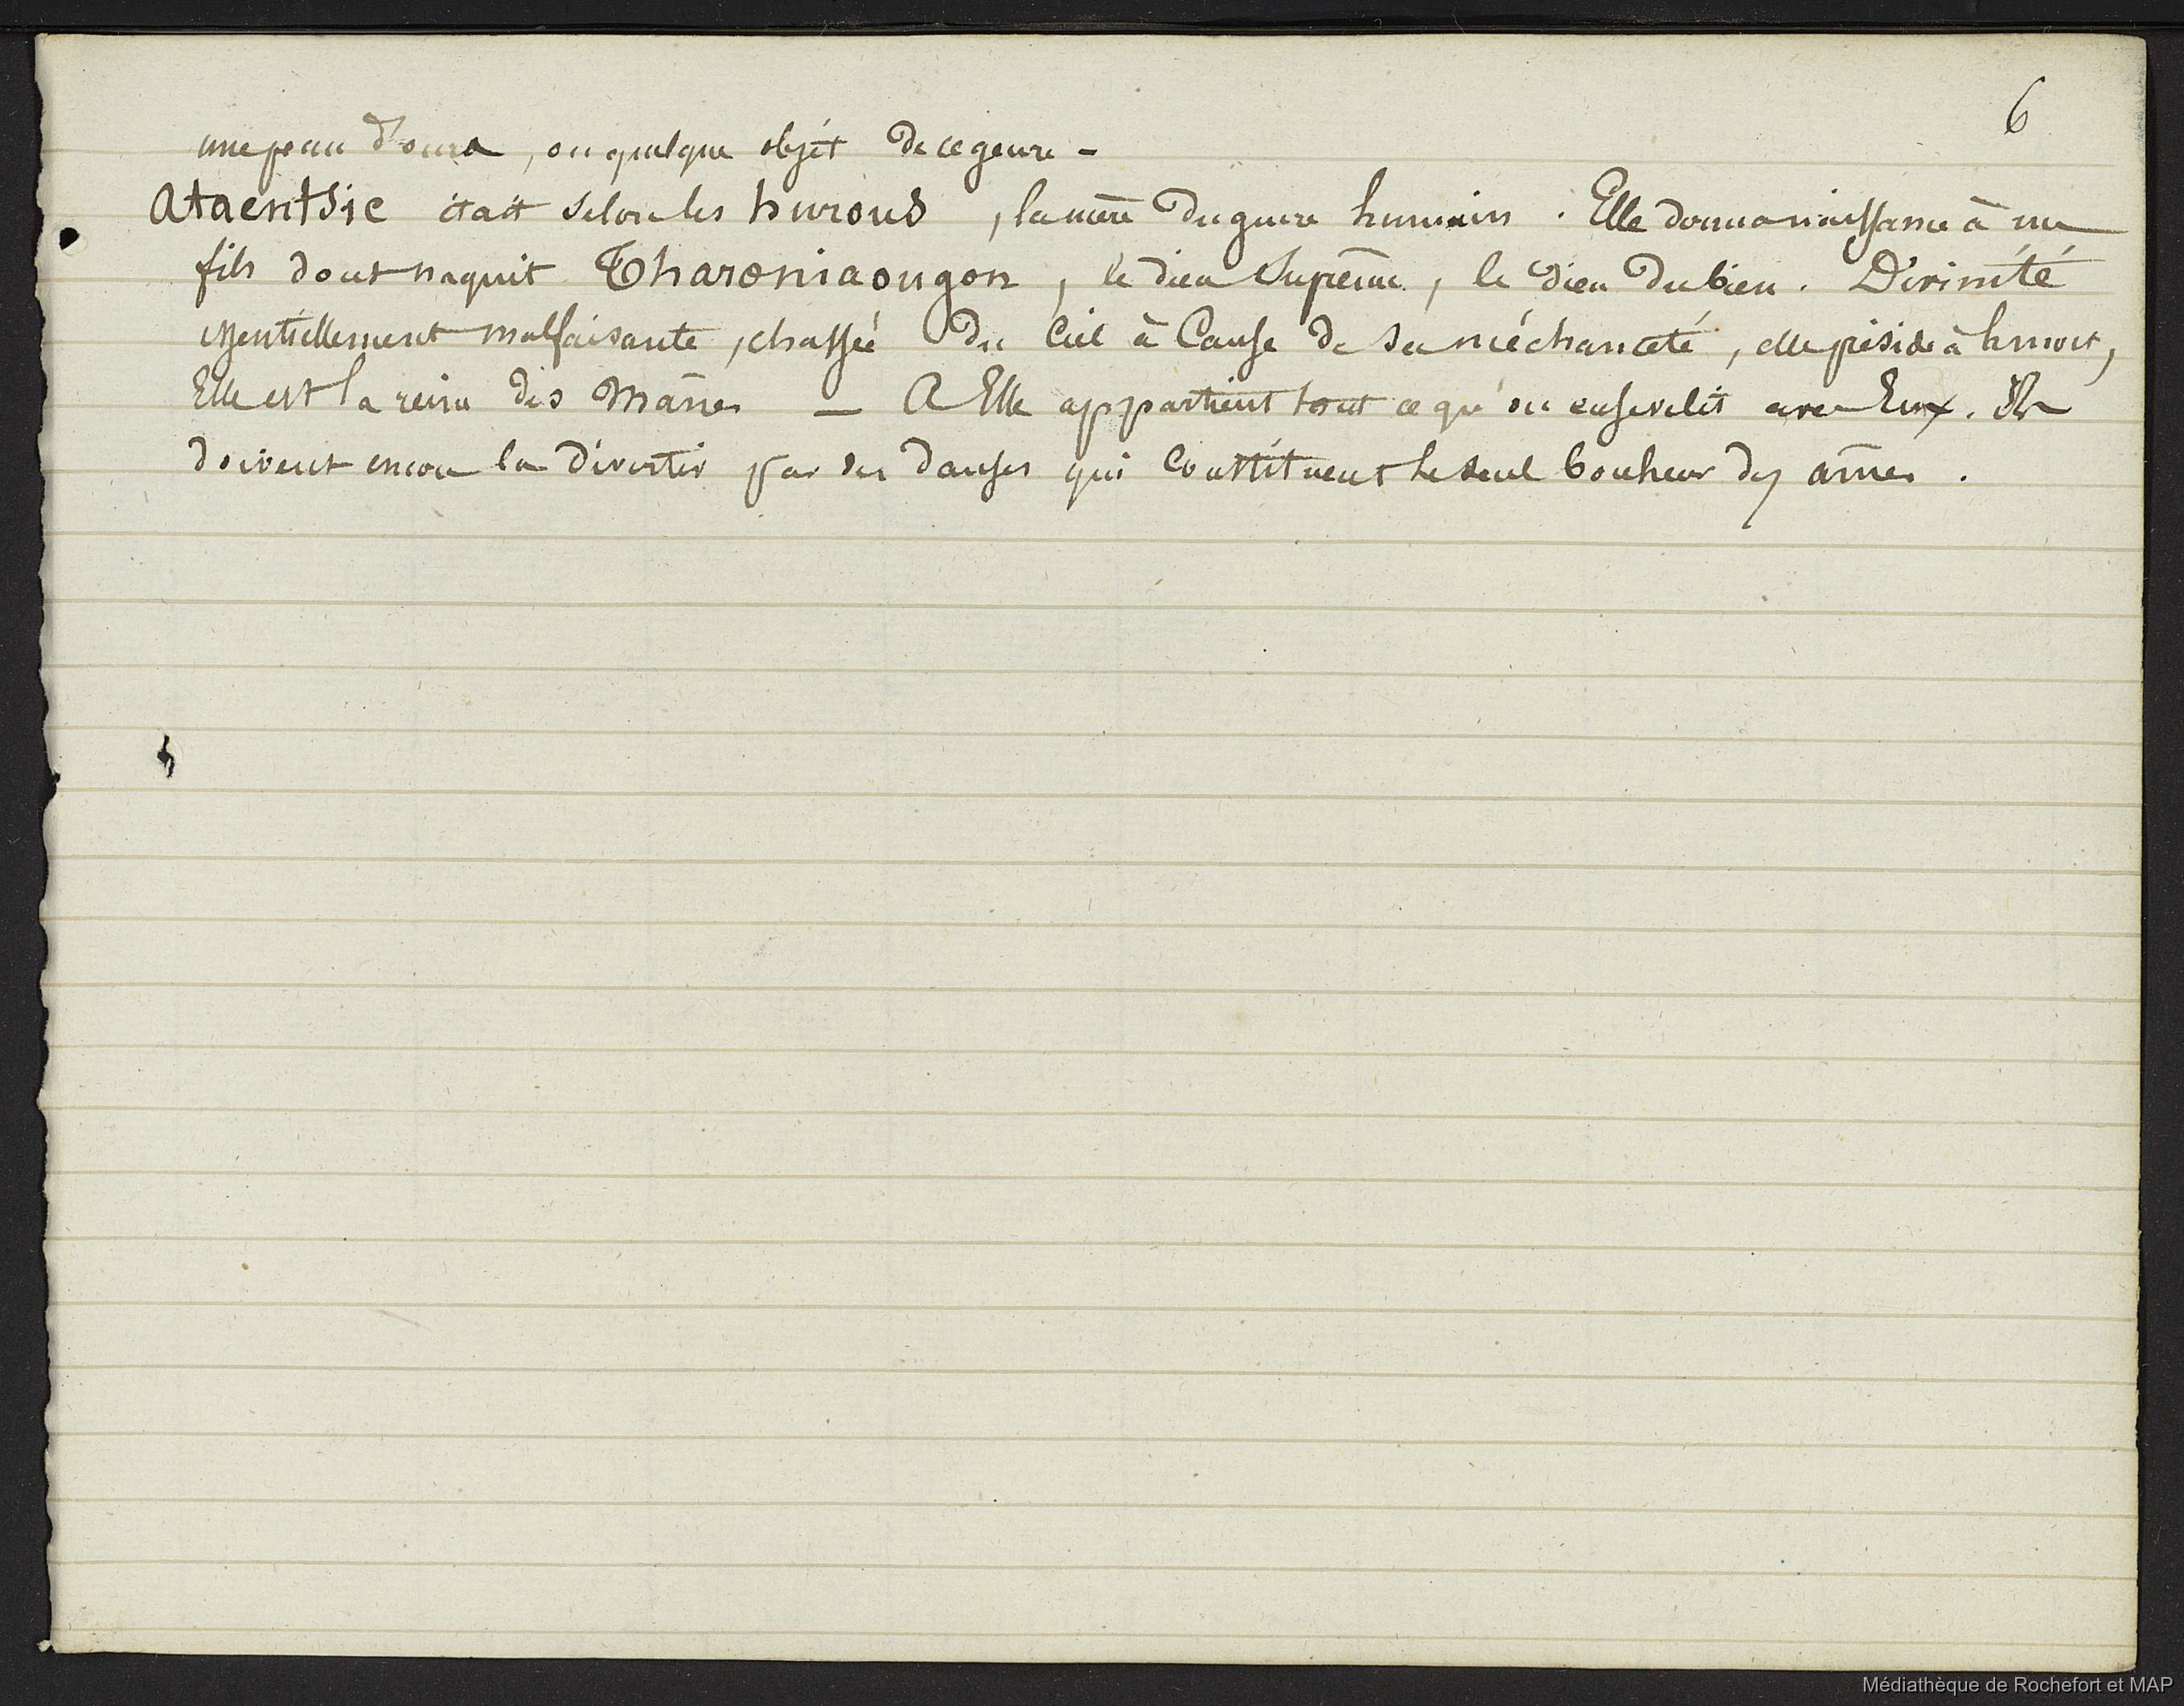 6
une peau d'ours, ou quelque objét de ce genre -
Ataentsic était selon les hurons, la mère du genre humain. Elle donna naissance à un
fils dont naquit Tharoniaougon, le dieu Suprême, le dieu du bien. Divinité
essentiellement malfaisante, chassée du Ciel à Cause de sa méchanceté, elle préside à la mort,
Elle est la reine des Mânes — A Elle appartient tout ce qu'on ensevelit avec Eux. Ils
doivent encore la divertir par des danses qui Constituent le seul bonheur des âmes.
Médiathèque de Rochefort et MAP